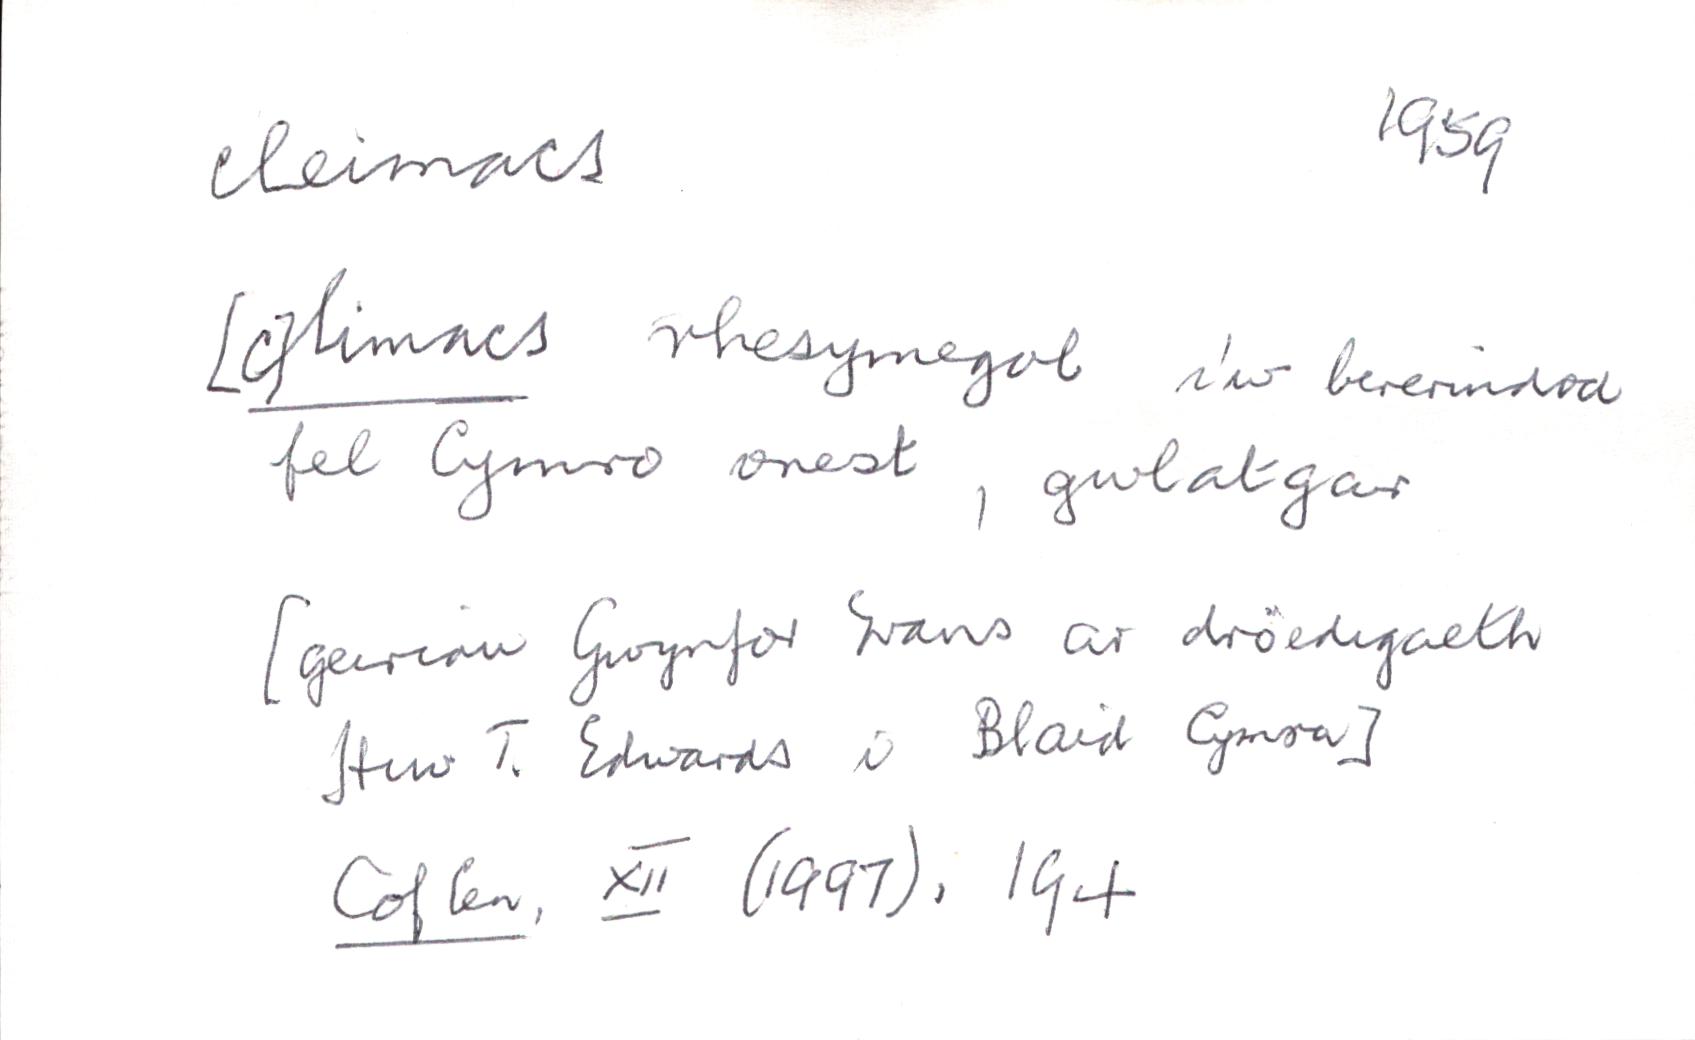 cleimacs 1959
[c]limacs rhesymegol i'w bererindod
fel Cymro onest, gwlatgar
[geiriau Gwynfor Evans ar dröedigaeth
Huw T. Edwards i Blaid Cymru]
Cof Cen, XII (1997), 194